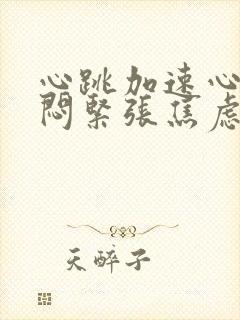 心跳加速心
闷緊張焦虑
天醉子